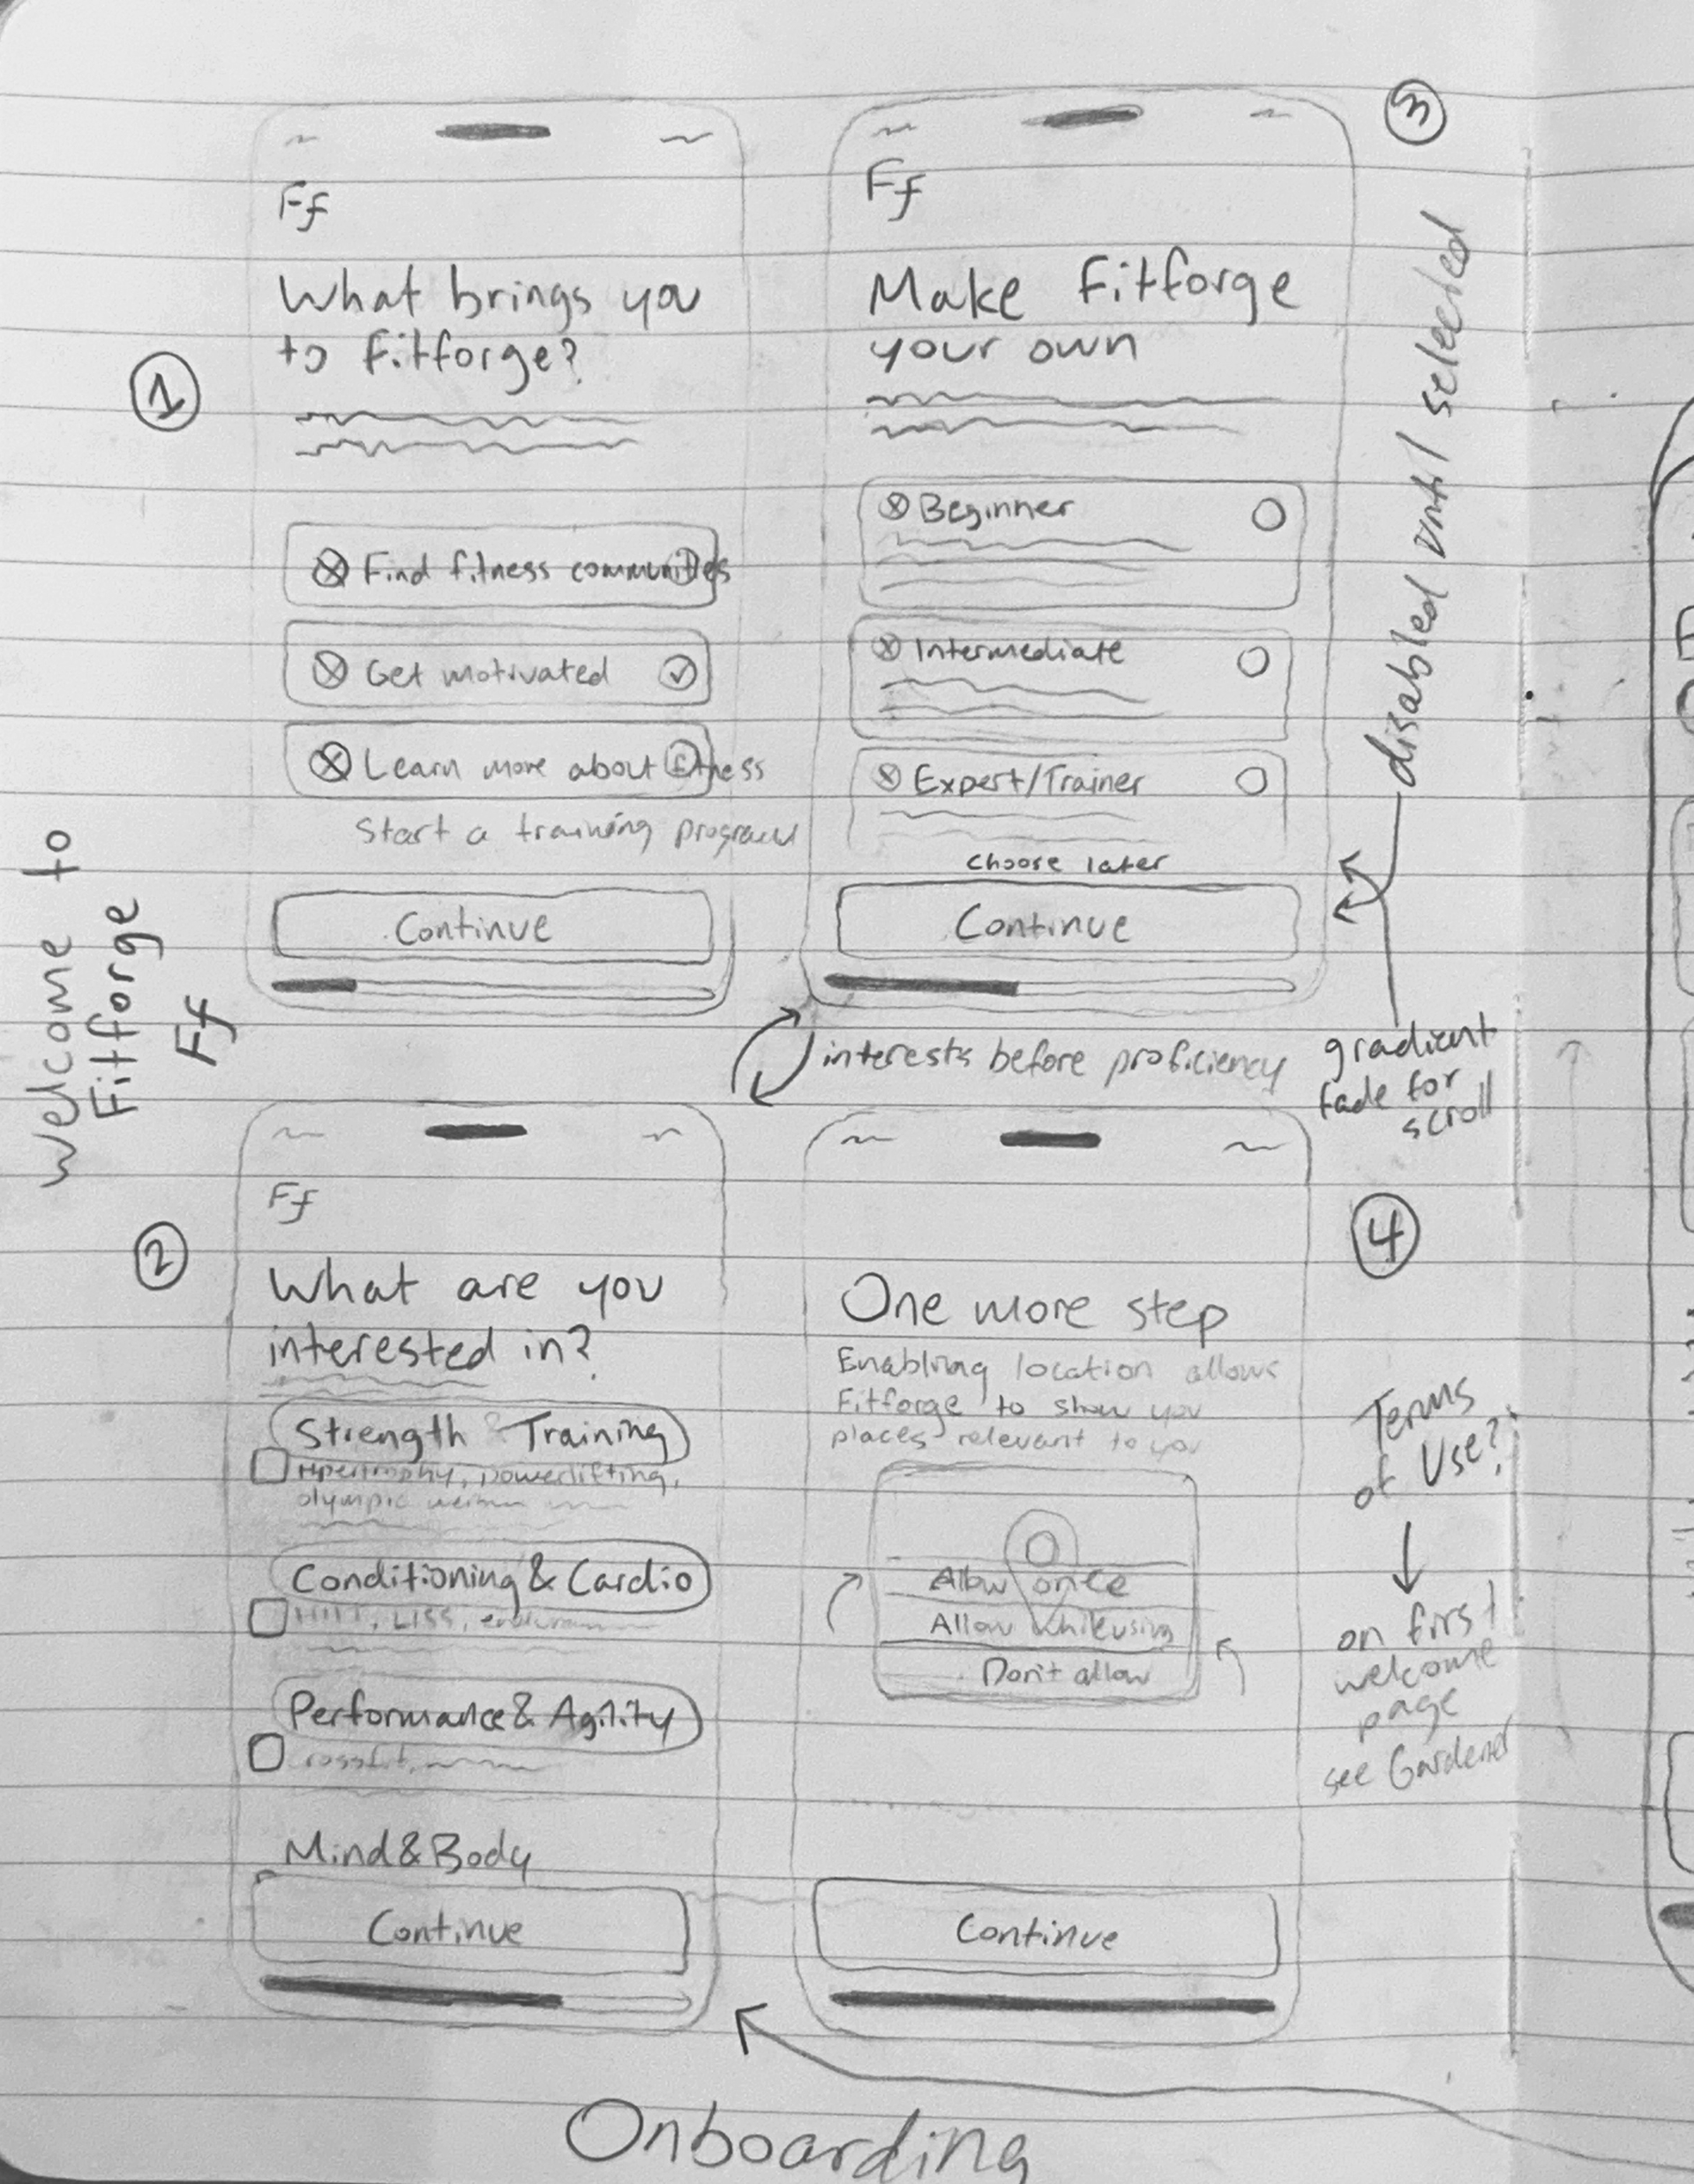 1
Ff
What brings you
to fitforge?
Find fitness communities
Get motivated
Learn more about fitness
Start a training program
Continue
3
Ff
Make Fitforge
your own
Beginner
Intermediate
Expert/Trainer
choose later
Continue
disabled until selected
gradient
fade for
scroll
interests before proficiency
Welcome to
Fitforge
Ff
2
Ff
What are you
interested in?
Strength & Training
Hpertrophy, powerlifting,
olympic
Conditioning & Cardio
HIIT, LISS,
Performance & Agility
Mind & Body
Continue
4
One more step
Enabling location allows
Fitforge to show you
places relevant to you
Allow once
Allow while using
Don't allow
Continue
Terms
of Use?
on first
welcome
page
see Gardener
Onboarding